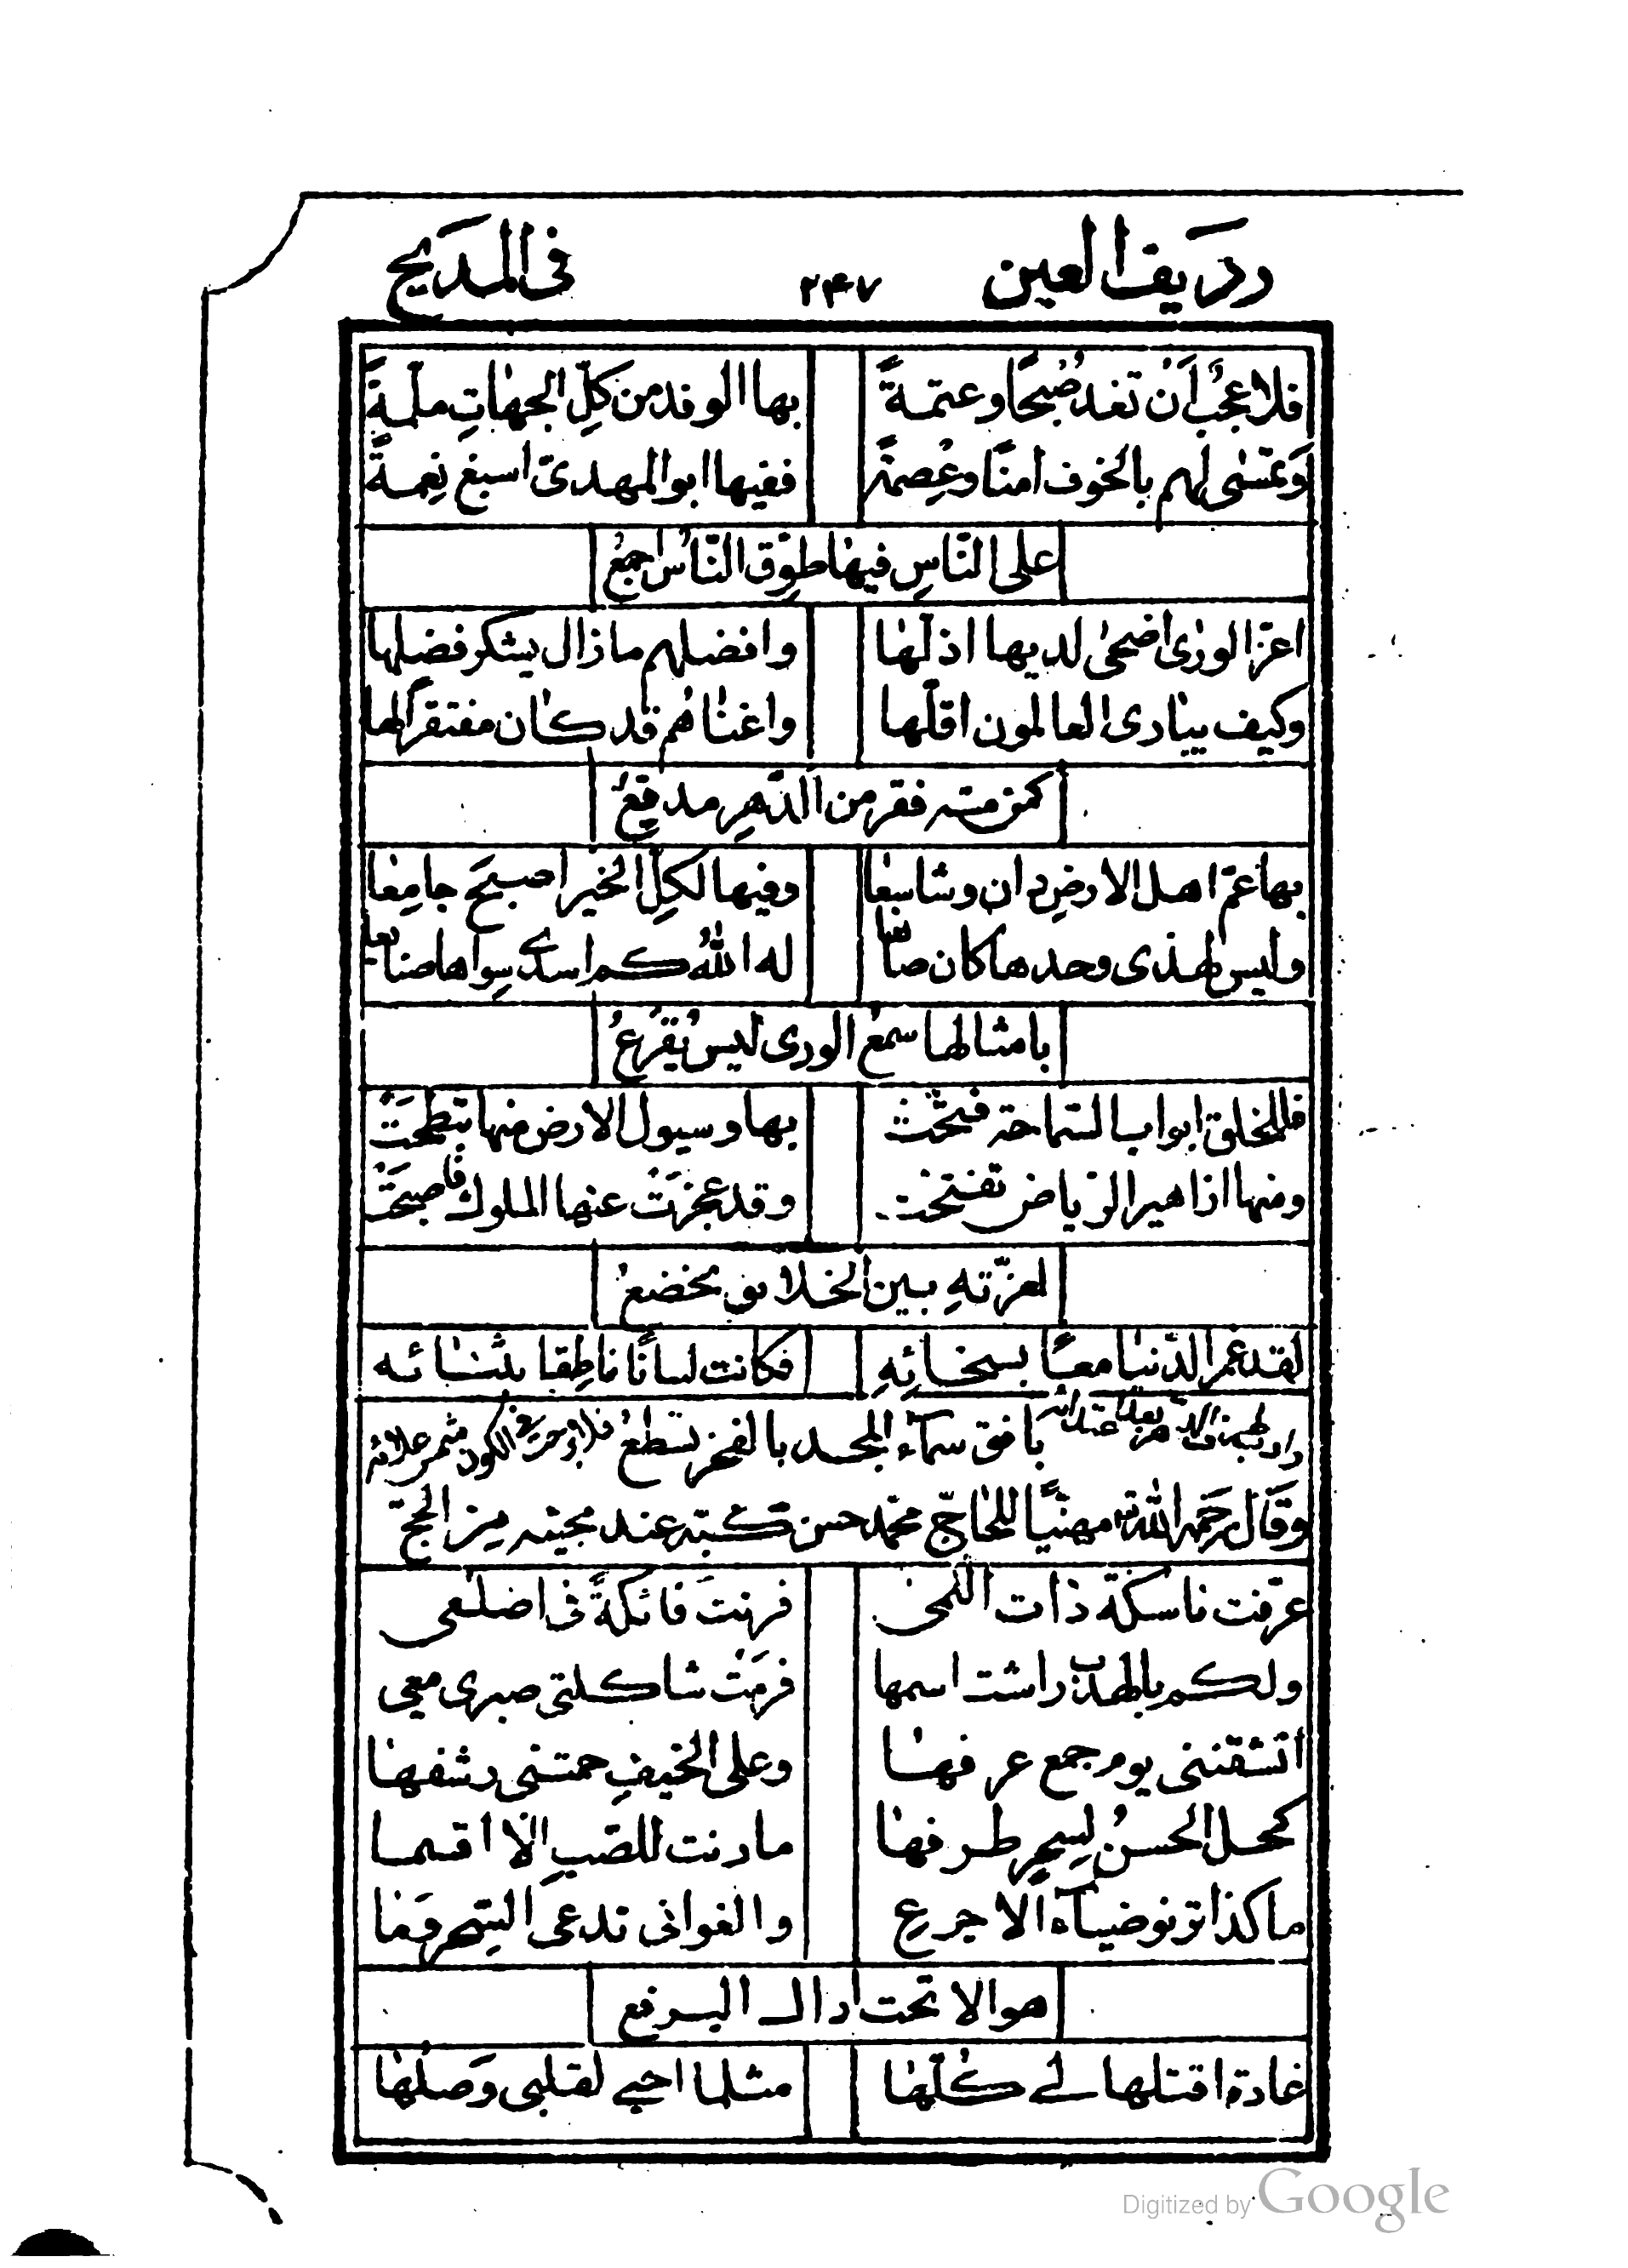 ردريف العين ٢٤٧ في المديح
فلا عجبٌ أن تغد صُبحًا وعتمةً بها الوفد من كلِّ الجهاتِ ملمّةً
وتمسى لهم بالخوف امنًا وعِصمةً ففيها ابو المهدىّ اسبغ نِعمةً
على النّاسِ فيها طوّق النّاسُ اجمعُ
اعزّ الورى اضحى لديها اذلّها وافضلهم مازال يشكر فضلها
وكيف يبادى العالمون اقلّها واغناهُم قد كان مفتقرًا لها
كمن مسّه فقر من الدّهرِ مدقِعُ
بها عمّ اهل الارضِ دان وشاسعا وفيها لكلِّ الخير اصبحَ جامِعا
وليس لهذى وحدها كان صانعا له اللهُ كم اسدى سِواها صنايعا
بامثالها سمعُ الورى ليس يُقرَعُ
فللخلق ابواب السّماحة فتّحت بها وسيول الارض منها تبطّحَت
ومنها ازاهير الرّياض تفتّحت وقد عجزَتْ عنها الملوك فاصبحَتْ
لعزّتهِ بين الخلايق تخضعُ
لقد عمر الدّنيا معًا بسخائِهِ فكانت لسانًا ناطِقا بثنائه
بافق سمآء المجد بالفخر تسطعُ
وقال رحمه الله مهنيًّا للحاجّ محمّد حسن كبّته عند مجيئه من الحجّ
عرّفت ناسكة ذات اللّمى فرنت فاتكةً فى اضلعى
ولكم بالهدب راشت اسهما فرمَتْ شاكلتى صبرى معى
انشقتنى يوم جمع عرفها وعلى الخيفِ حمتنى رشفها
كحل الحسنُ بسِحرٍ طرفها ما رنت للصّبِ الّا اقسما
ما كذا ترنو ضبآء الاجرعِ والغوانى تدعى السّحر وَما
هو الا تحت ذاك البرقع
غادة اقتلها لے كلّها مثلما احيے لقلبى وَصلُها